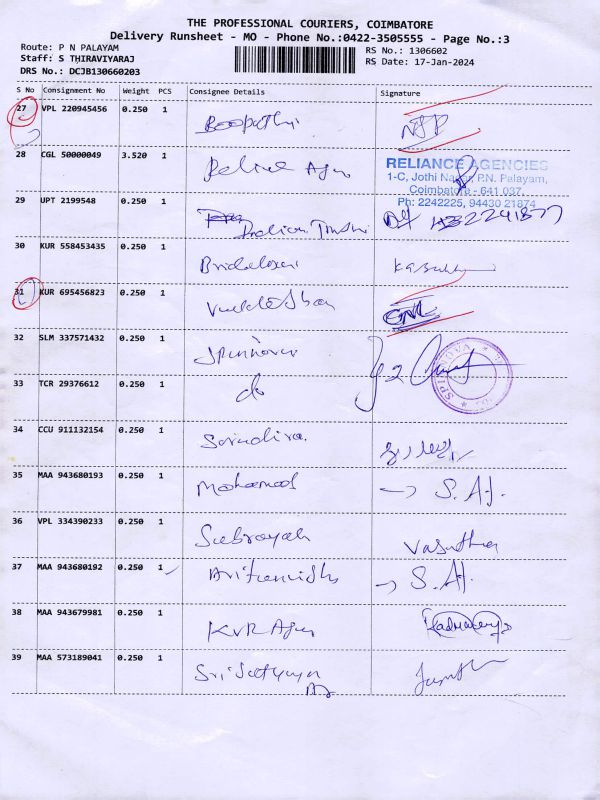 THE PROFESSIONAL COURIERS, COIMBATORE
Delivery Runsheet - MO - Phone No.:0422-3505555 - Page No.:3
Route: P N PALAYAM
RS No.: 1306602
Staff: S THIRAVIYARAJ
RS Date: 17-Jan-2024
DRS No.: DCJB130660203
S No Consignment No Weight PCS Consignee Details Signature
27 VPL 220945456 0.250 1 Boopathi
28 CGL 50000049 3.520 1
RELIANCE AGENCIES
1-C, Jothi Nagar, P.N. Palayam,
Coimbatore - 641 037.
Ph: 2242225, 94430 21874
29 UPT 2199548 0.250 1
30 KUR 558453435 0.250 1
31 KUR 695456823 0.250 1
32 SLM 337571432 0.250 1 SPINNOVA
33 TCR 29376612 0.250 1 do
34 CCU 911132154 0.250 1
35 MAA 943680193 0.250 1 Mohamed → S. AJ.
36 VPL 334390233 0.250 1 Subrayah Vasutha
37 MAA 943680192 0.250 1 → S. AJ.
38 MAA 943679981 0.250 1 KVR
39 MAA 573189041 0.250 1 Sri